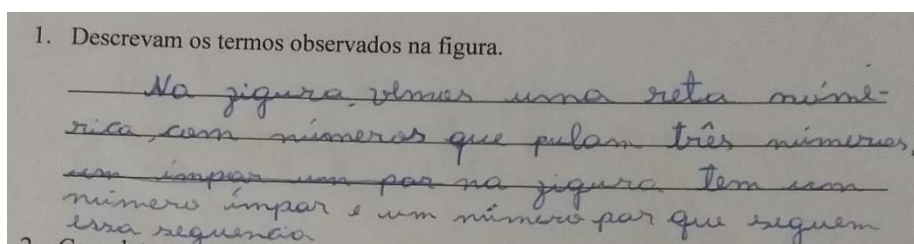 1. Descrevam os termos observados na figura.
Na figura, vemos uma reta númé-
rica, com números que pulam três números,
um ímpar um par na figura tem um
número ímpar e um número par que seguem
essa sequencia